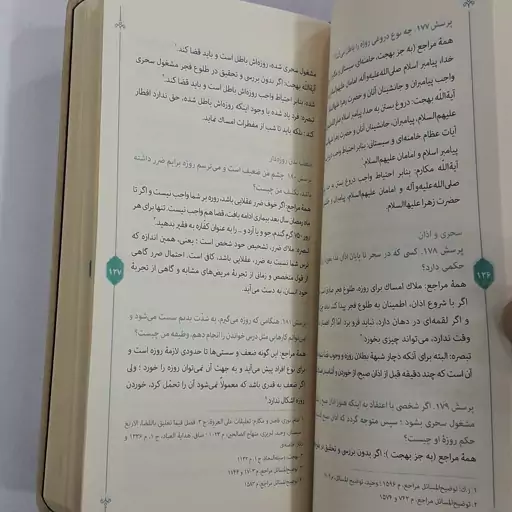 پرسش ۱۷۷. چه نوع دروغی روزه را باطل می‌کند؟
همهٔ مراجع (به جز بهجت، خامنه‌ای، سیستانی
خدا، پیامبر اسلام صلی‌الله‌علیه‌وآله و امامان
واجب پیامبران و جانشینان آنان و حضرت زهرا
آیةالله بهجت: دروغ بستن به خدا، پیامبر
علیهم‌السلام، پیامبران، جانشینان آنان و حضرت زهرا
آیات عظام خامنه‌ای و سیستانی: بنابر احتیاط واجب
پیامبر اسلام و امامان علیهم‌السلام.
آیةالله مکارم: بنابر احتیاط واجب دروغ بستن به
صلی‌الله‌علیه‌وآله و امامان علیهم‌السلام، پیامبران و
حضرت زهرا علیهاالسلام.
سحری و اذان
پرسش ۱۷۸. کسی که در سحر تا پایان اذان
حکمی دارد؟
همهٔ مراجع: ملاک امساک برای روزه، طلوع فجر
اگر با شروع اذان، اطمینان به طلوع فجر پیدا کند
و اگر لقمه‌ای در دهان دارد، نباید فرو برد؛ امّا اگر
وقت ندارد، می‌تواند چیزی بخورد.¹
تبصره: البته برای آنکه دچار شبههٔ بطلان روزه و
آن است که چند دقیقه قبل از اذان صبح، از خوردن و آشامیدن
پرسش ۱۷۹. اگر شخصی با اعتقاد به اینکه هنوز اذان صبح
مشغول سحری بشود؛ سپس متوجه گردد که اذان صبح
حکم روزهٔ او چیست؟
همهٔ مراجع (به جز بهجت): اگر بدون بررسی و تحقیق
۱. ر.ک: توضیح‌المسائل مراجع، م ۱۵۹۶؛ وحید، توضیح‌المسائل، م
۲. توضیح‌المسائل مراجع، م ۷۴۲ و ۱۵۷۴
۱۲۶
مشغول سحری شده، روزه‌اش باطل است و باید قضا کند.¹
آیةالله بهجت: اگر بدون بررسی و تحقیق در طلوع فجر مشغول سحری
شده، بنابر احتیاط واجب روزه‌اش باطل است و باید قضا کند.²
تبصره: فرد یاد شده با وجود اینکه روزه‌اش باطل شده، حق ندارد افطار
کند؛ بلکه باید تا شب از مفطرات امساک نماید.
ضعف بدن روزه‌دار
پرسش ۱۸۰. چشم من ضعیف است و می‌ترسم روزه برایم ضرر داشته
باشد، تکلیف من چیست؟
همهٔ مراجع: اگر خوف ضرر عقلایی باشد، روزه بر شما واجب نیست و اگر تا
ماه رمضان سال بعد بیماری ادامه یافت، قضا هم واجب نیست. تنها برای هر
روز ۷۵۰ گرم گندم، جو یا آرد و ... را به عنوان کفّاره به فقیر بدهید.³
تبصره: ملاک ضرر، تشخیص خود شخص است؛ یعنی، همین اندازه که
ترس شما نسبت به ضرر، عقلایی باشد، کافی است. احتمال ضرر گاهی
از قول متخصص و زمانی از تجربهٔ مریض‌های مشابه و گاهی از تجربهٔ
خود انسان، به دست می‌آید.
پرسش ۱۸۱. هنگامی که روزه می‌گیرم، به شدت بدنم سست می‌شود و
نمی‌توانم کارهایی مثل درس خواندن را انجام دهم، وظیفه من چیست؟
همهٔ مراجع: این گونه ضعف و سستی‌ها تا حدودی لازمهٔ روزه است و
برای نوع افراد پیش می‌آید و به جهت آن نمی‌توان روزه را خورد؛ ولی
اگر ضعف به قدری باشد که معمولاً نمی‌شود آن را تحمّل کرد، خوردن
روزه اشکال ندارد.⁴
۲. بهجت، وسیلةالنجاة، ج ۱، م ۱۱۲۲
۳. توضیح‌المسائل مراجع، م ۱۷۰۳ و ۱۷۴۴
۴. توضیح‌المسائل مراجع، م ۱۵۸۳
۱۲۷